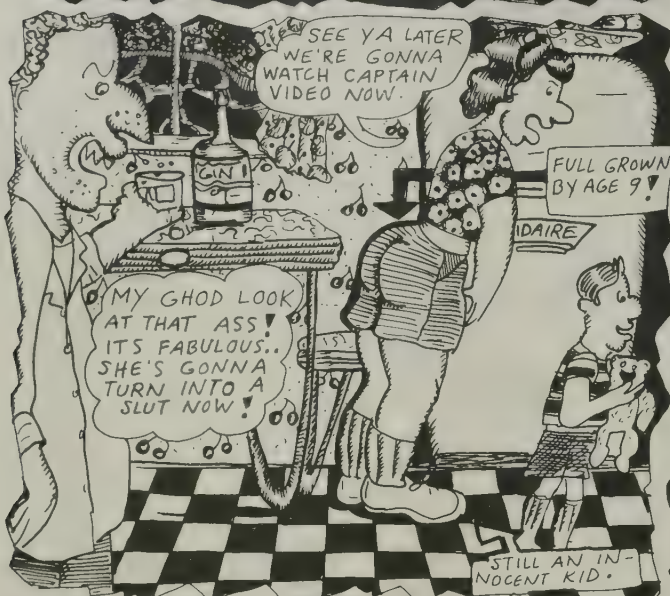 SEE YA LATER
WE'RE GONNA
WATCH CAPTAIN
VIDEO NOW.
GIN
FULL GROWN
BY AGE 9!
IDAIRE
MY GHOD LOOK
AT THAT ASS!
ITS FABULOUS..
SHE'S GONNA
TURN INTO A
SLUT NOW!
STILL AN IN-
NOCENT KID.